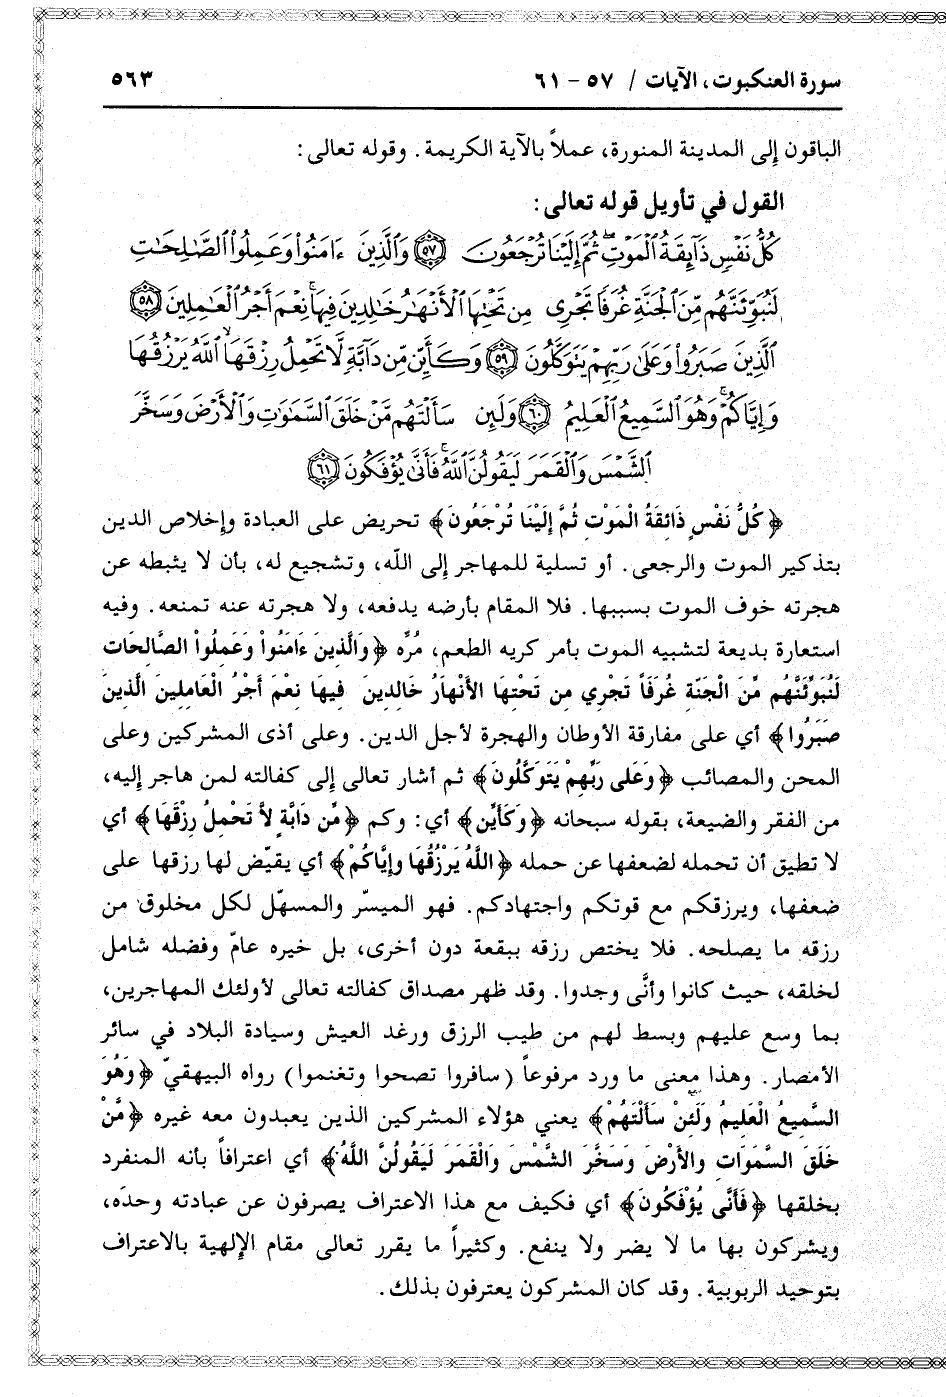 سورة العنكبوت، الآيات / ٥٧ - ٦١ ٥٦٣
الباقون إلى المدينة المنورة، عملاً بالآية الكريمة. وقوله تعالى:
القول في تأويل قوله تعالى:
كُلُّ نَفْسٍ ذَآئِقَةُ ٱلْمَوْتِۖ ثُمَّ إِلَيْنَا تُرْجَعُونَ ﴿٥٧﴾ وَٱلَّذِينَ ءَامَنُوا۟ وَعَمِلُوا۟ ٱلصَّٰلِحَٰتِ
لَنُبَوِّئَنَّهُم مِّنَ ٱلْجَنَّةِ غُرَفًا تَجْرِى مِن تَحْتِهَا ٱلْأَنْهَٰرُ خَٰلِدِينَ فِيهَاۚ نِعْمَ أَجْرُ ٱلْعَٰمِلِينَ ﴿٥٨﴾
ٱلَّذِينَ صَبَرُوا۟ وَعَلَىٰ رَبِّهِمْ يَتَوَكَّلُونَ ﴿٥٩﴾ وَكَأَيِّن مِّن دَآبَّةٍ لَّا تَحْمِلُ رِزْقَهَا ٱللَّهُ يَرْزُقُهَا
وَإِيَّاكُمْۚ وَهُوَ ٱلسَّمِيعُ ٱلْعَلِيمُ ﴿٦٠﴾ وَلَئِن سَأَلْتَهُم مَّنْ خَلَقَ ٱلسَّمَٰوَٰتِ وَٱلْأَرْضَ وَسَخَّرَ
ٱلشَّمْسَ وَٱلْقَمَرَ لَيَقُولُنَّ ٱللَّهُۖ فَأَنَّىٰ يُؤْفَكُونَ ﴿٦١﴾
﴿كُلُّ نَفْسٍ ذَائِقَةُ الْمَوْتِ ثُمَّ إِلَيْنَا تُرْجَعُونَ﴾ تحريض على العبادة وإخلاص الدين
بتذكير الموت والرجعى. أو تسلية للمهاجر إلى اللّه، وتشجيع له، بأن لا يثبطه عن
هجرته خوف الموت بسببها. فلا المقام بأرضه يدفعه، ولا هجرته عنه تمنعه. وفيه
استعارة بديعة لتشبيه الموت بأمر كريه الطعم، مُرّه ﴿وَالَّذِينَ ءَامَنُواْ وَعَمِلُوا الصَّالِحَات
لَنُبَوِّئَنَّهُم مِّنَ الْجَنَّةِ غُرَفَاً تَجْرِي مِن تَحْتِهَا الأَنْهَارُ خَالِدِينَ فِيهَا نِعْمَ أَجْرُ الْعَامِلِينَ الَّذِينَ
صَبَرُوا﴾ أي على مفارقة الأوطان والهجرة لأجل الدين. وعلى أذى المشركين وعلى
المحن والمصائب ﴿وَعَلَى رَبِّهِمْ يَتَوَكَّلُونَ﴾ ثم أشار تعالى إلى كفالته لمن هاجر إليه،
من الفقر والضيعة، بقوله سبحانه ﴿وَكَأَيِّن﴾ أي: وكم ﴿مِّن دَابَّةٍ لاَّ تَحْمِلُ رِزْقَهَا﴾ أي
لا تطيق أن تحمله لضعفها عن حمله ﴿اللَّهُ يَرْزُقُهَا وإِيَّاكُمْ﴾ أي يقيّض لها رزقها على
ضعفها، ويرزقكم مع قوتكم واجتهادكم. فهو الميسّر والمسهّل لكل مخلوق من
رزقه ما يصلحه. فلا يختص رزقه ببقعة دون أخرى، بل خيره عامّ وفضله شامل
لخلقه، حيث كانوا وأنَّى وجدوا. وقد ظهر مصداق كفالته تعالى لأولئك المهاجرين،
بما وسع عليهم وبسط لهم من طيب الرزق ورغد العيش وسيادة البلاد في سائر
الأمصار. وهذا معنى ما ورد مرفوعاً (سافروا تصحوا وتغنموا) رواه البيهقيّ ﴿وَهُوَ
السَّمِيعُ الْعَلِيمُ وَلَئِنْ سَأَلْتَهُمْ﴾ يعني هؤلاء المشركين الذين يعبدون معه غيره ﴿مَّنْ
خَلَقَ السَّمَوَاتِ والأَرْضَ وَسَخَّرَ الشَّمْسَ وَالْقَمَرَ لَيَقُولُنَّ اللَّهُ﴾ أي اعترافاً بأنه المنفرد
بخلقها ﴿فَأَنَّى يُؤْفَكُونَ﴾ أي فكيف مع هذا الاعتراف يصرفون عن عبادته وحدَه،
ويشركون بها ما لا يضر ولا ينفع. وكثيراً ما يقرر تعالى مقام الإلهية بالاعتراف
بتوحيد الربوبية. وقد كان المشركون يعترفون بذلك.